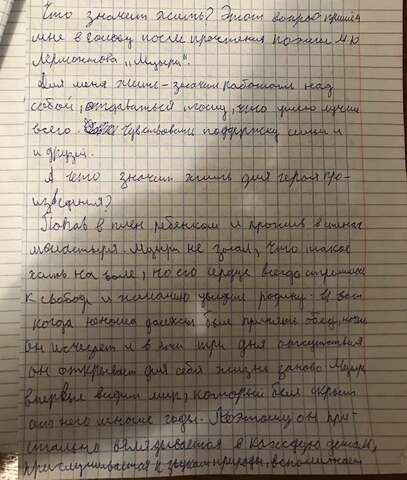 Что значит жить? Этот вопрос пришёл
мне в голову после прочтения поэмы М.Ю
Лермонтова „Мцыри".
Для меня жить – значит работать над
собой, отдаваться тому, что умею лучше
всего. Чувствовать поддержку семьи и
и друзей.
А что значит жить для героя про-
изведения?
Попав в плен ребёнком и прожив в стенах
монастыря. Мцыри не знал, что такое
жить на воле, но его сердце всегда стремилось
к свободе и желанию увидеть родину. И вот
когда юноша должен был принять обед, ночью
он исчезает и в эти три дня отсутствия
он открывает для себя жизнь заново. Мцыри
впервые видит мир, который был скрыт
от него многие годы. Поэтому он при-
стально вглядывается в каждую деталь,
прислушивается к звукам природы, вспоминает